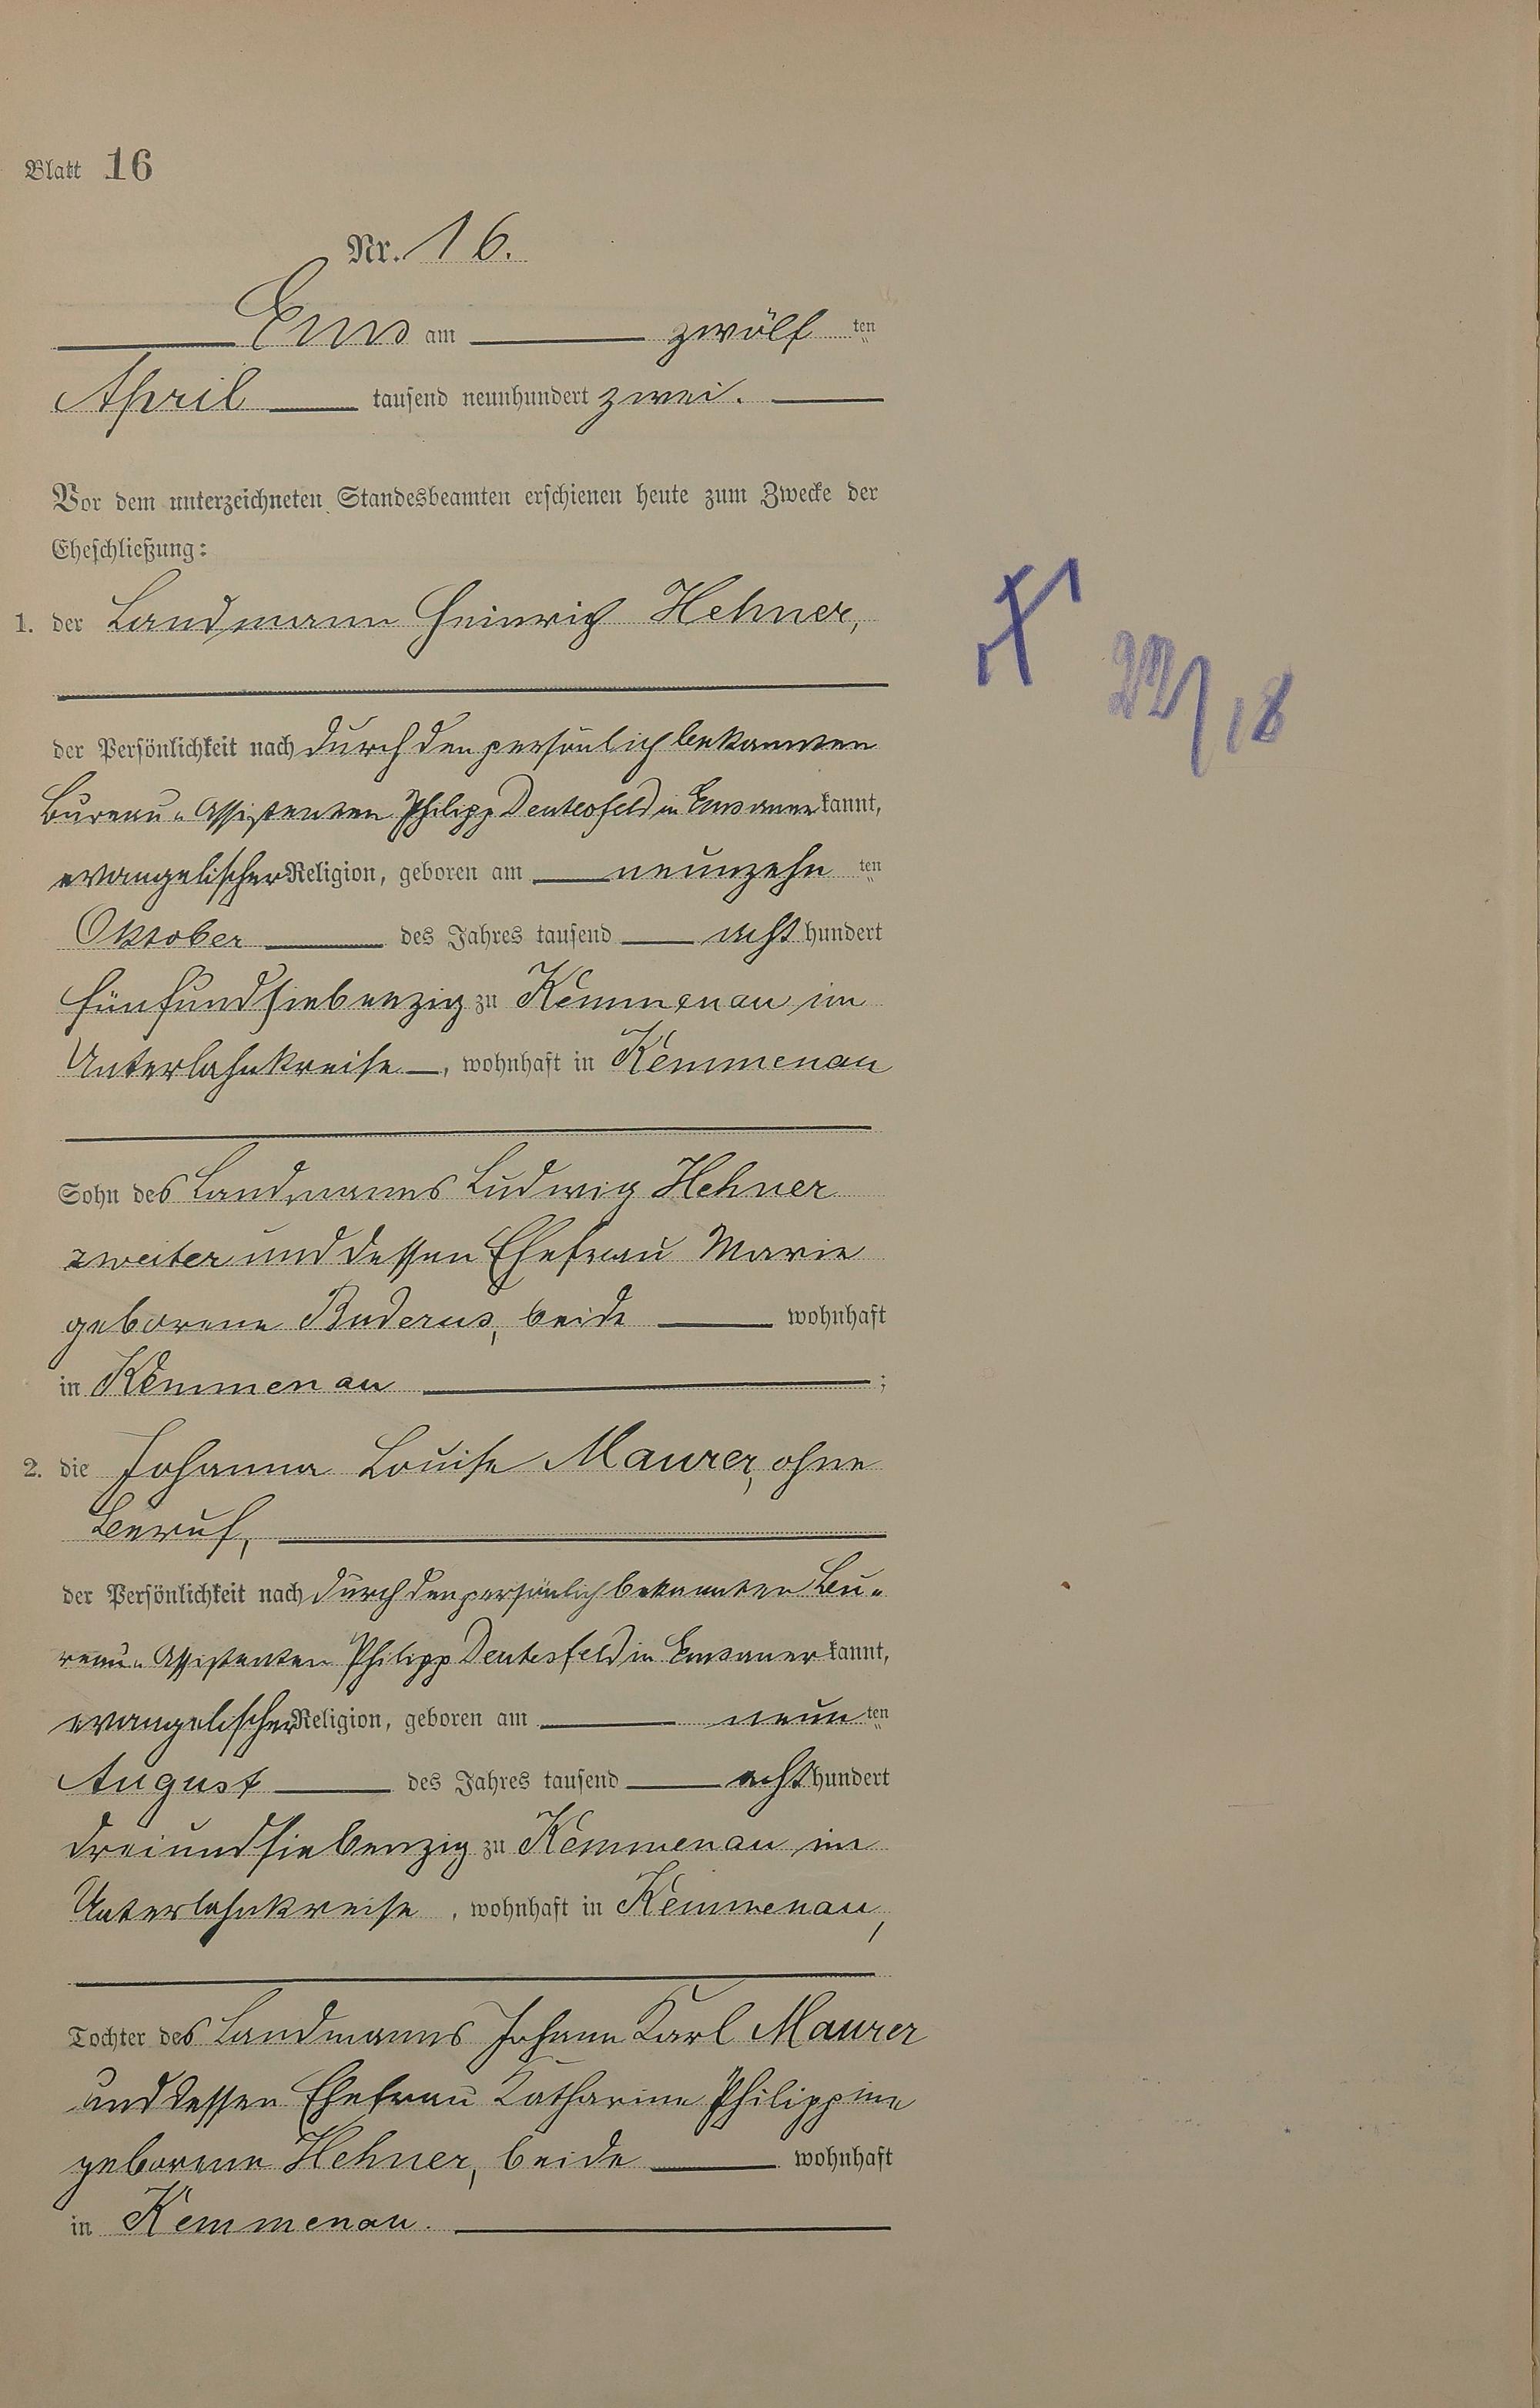 Blatt 16
Nr. 16.
Ems am zwölf ten
April tausend neunhundert zwei.
Vor dem unterzeichneten Standesbeamten erschienen heute zum Zwecke der
Eheschließung:
1. der Landmann Heinrich Hehner,
der Persönlichkeit nach durch den persönlich bekannten
Bureau-Assistenten Philipp Deutesfeld in Ems anerkannt,
evangelischer Religion, geboren am neunzehn ten
Oktober des Jahres tausend acht hundert
fünfundsiebenzig zu Kemmenau im
Unterlahnkreise, wohnhaft in Kemmenau
Sohn des Landmanns Ludwig Hehner
zweiter und dessen Ehefrau Marie
geborene Buderus, beide wohnhaft
in Kemmenau ;
2. die Johanna Louise Maurer, ohne
Beruf,
der Persönlichkeit nach durch den persönlich bekannten Bu-
reau-Assistenten Philipp Deutesfeld in Ems anerkannt,
evangelischer Religion, geboren am neun ten
August des Jahres tausend acht hundert
dreiundsiebenzig zu Kemmenau im
Unterlahnkreise, wohnhaft in Kemmenau,
Tochter des Landmanns Johann Karl Maurer
und dessen Ehefrau Katharine Philippine
geborene Hehner, beide wohnhaft
in Kemmenau.